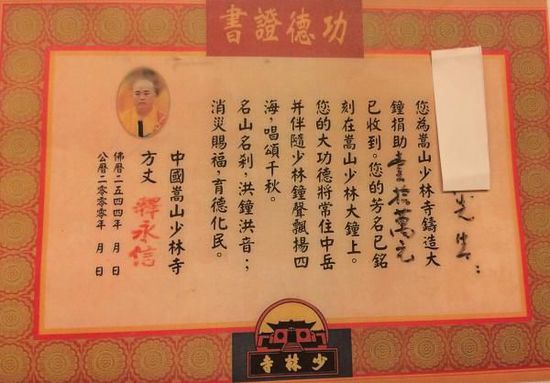 功德證書
先生：
您為嵩山少林寺鑄造大
鐘捐助壹拾萬元
已收到。您的芳名已銘
刻在嵩山少林大鐘上。
您的大功德將常住中岳
并伴隨少林鐘聲飄揚四
海，唱頌千秋。
名山名剎，洪鐘洪音；
消災賜福，育德化民。
中國嵩山少林寺
方丈 釋永信
佛曆二五四四年 月 日
公曆二〇〇〇年 月 日
少林寺